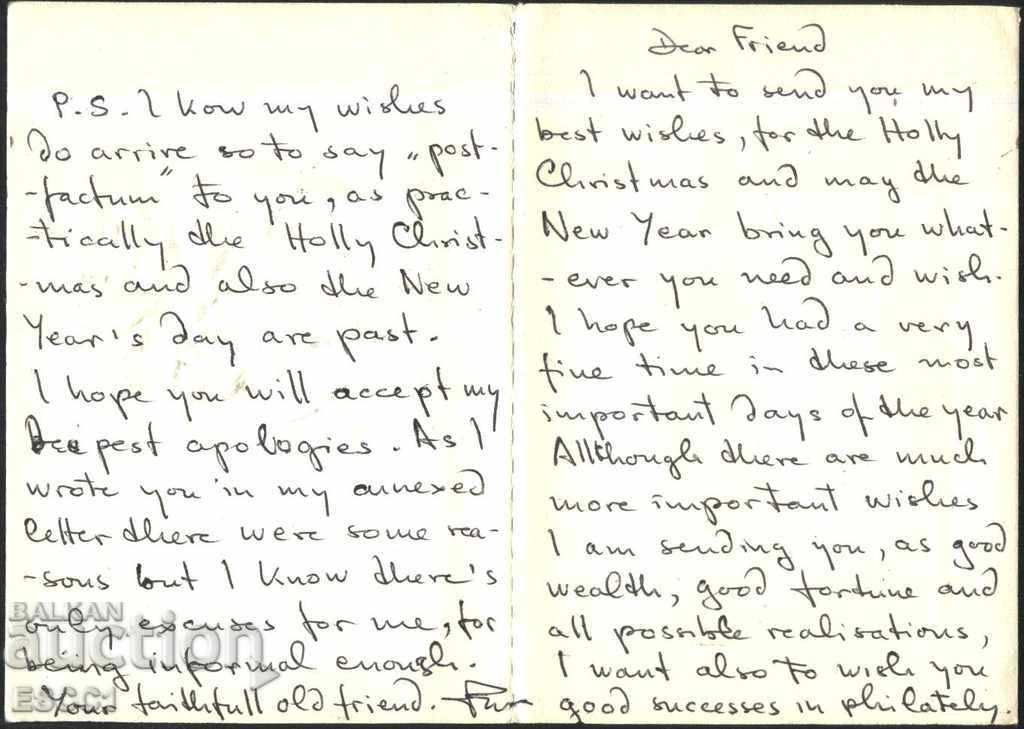 Dear Friend
I want to send you my
best wishes, for the Holly
Christmas and may the
New Year bring you what-
-ever you need and wish.
I hope you had a very
fine time in these most
important days of the year
Allthough there are much
more important wishes
I am sending you, as good
wealth, good fortune and
all possible realisations,
I want also to wish you
good successes in philately.
P.S. I kow my wishes
do arrive so to say „post-
-factum" to you, as prac-
-tically the Holly Christ-
-mas and also the New
Year's day are past.
I hope you will accept my
deepest apologies. As I
wrote you in my annexed
letter there were some rea-
-sons but I know there's
only excuses for me, for
being informal enough.
Your faithfull old friend.
BALKAN
auction